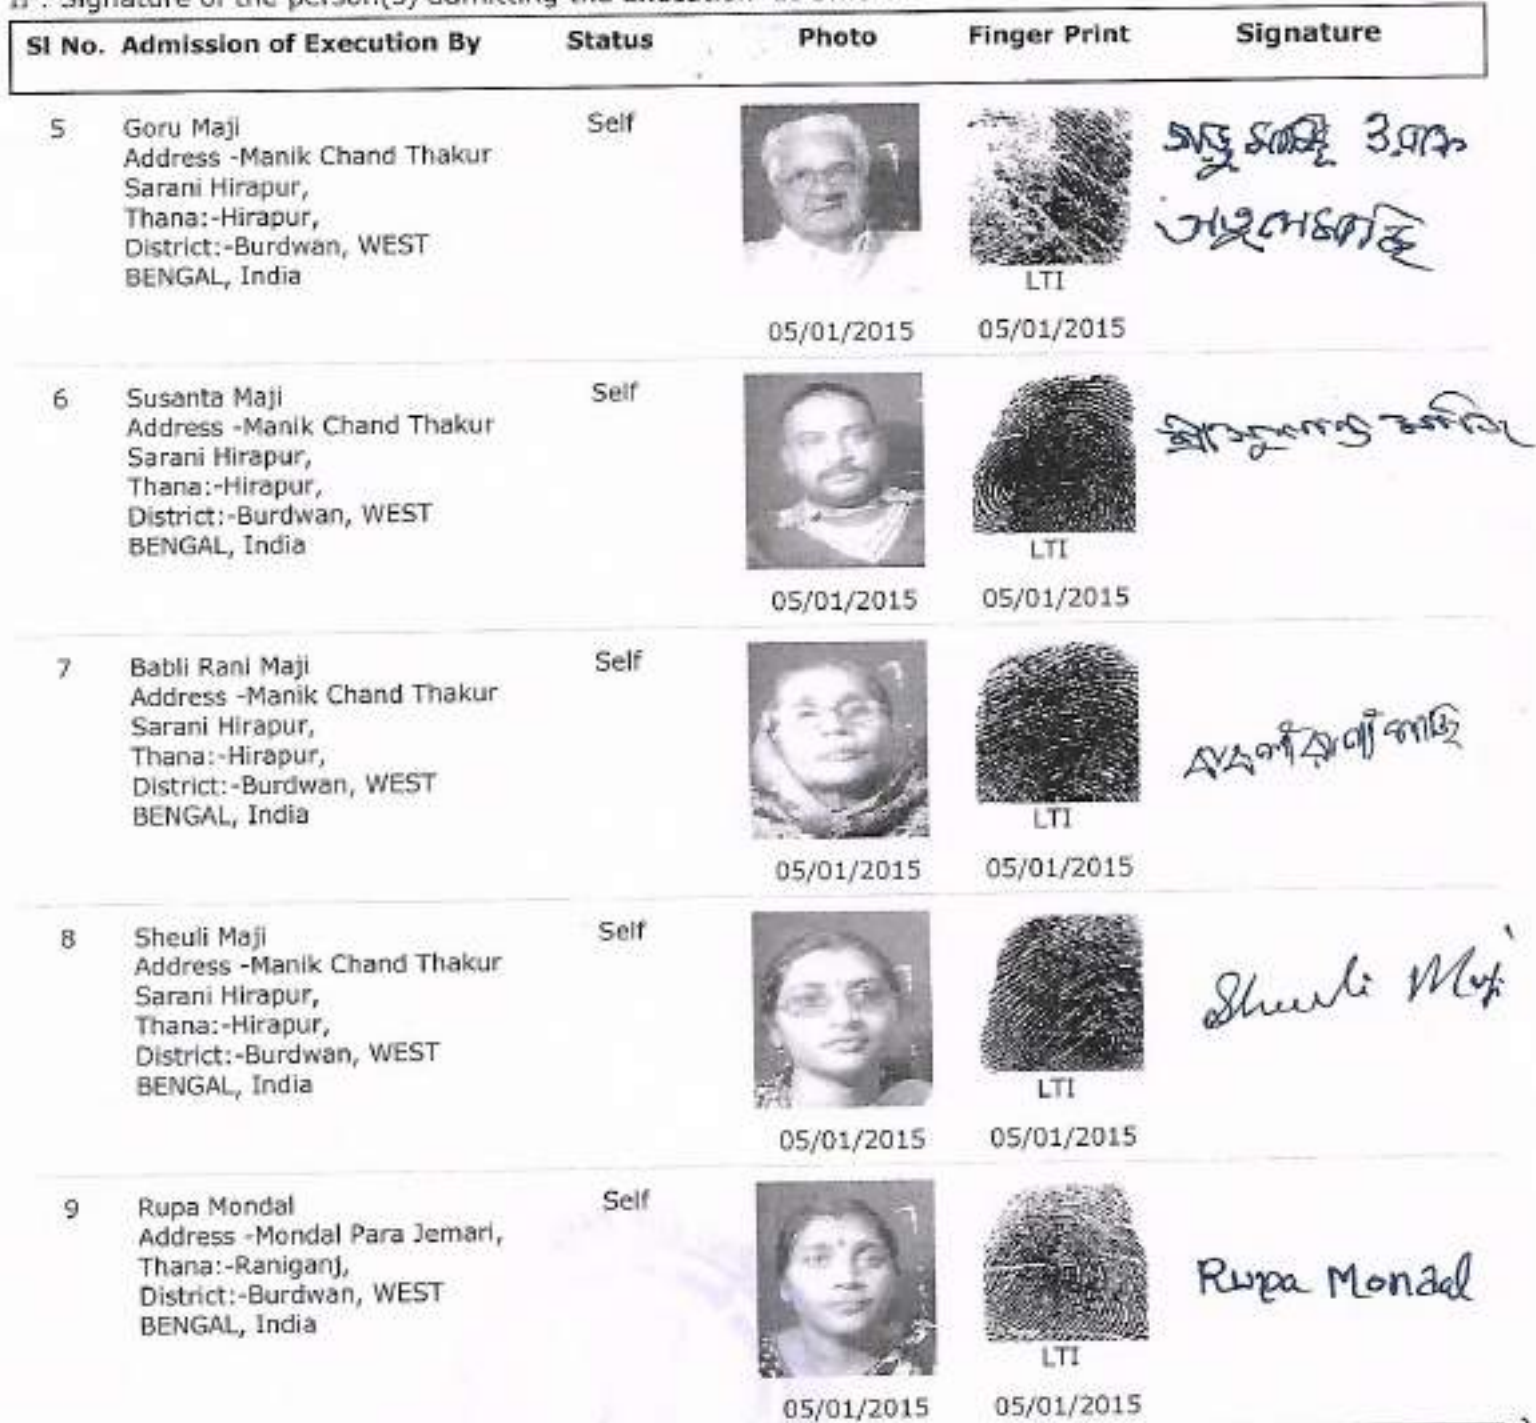 II . Signature of the person(s) admitting the Execution
Sl No. Admission of Execution By Status Photo Finger Print Signature
5 Goru Maji Self
Address -Manik Chand Thakur
Sarani Hirapur,
Thana:-Hirapur,
District:-Burdwan, WEST
BENGAL, India
LTI
05/01/2015 05/01/2015
6 Susanta Maji Self
Address -Manik Chand Thakur
Sarani Hirapur,
Thana:-Hirapur,
District:-Burdwan, WEST
BENGAL, India
LTI
05/01/2015 05/01/2015
7 Babli Rani Maji Self
Address -Manik Chand Thakur
Sarani Hirapur,
Thana:-Hirapur,
District:-Burdwan, WEST
BENGAL, India
LTI
05/01/2015 05/01/2015
8 Sheuli Maji Self
Address -Manik Chand Thakur
Sarani Hirapur,
Thana:-Hirapur,
District:-Burdwan, WEST
BENGAL, India
Sheuli Maji
LTI
05/01/2015 05/01/2015
9 Rupa Mondal Self
Address -Mondal Para Jemari,
Thana:-Raniganj,
District:-Burdwan, WEST
BENGAL, India
Rupa Mondal
LTI
05/01/2015 05/01/2015